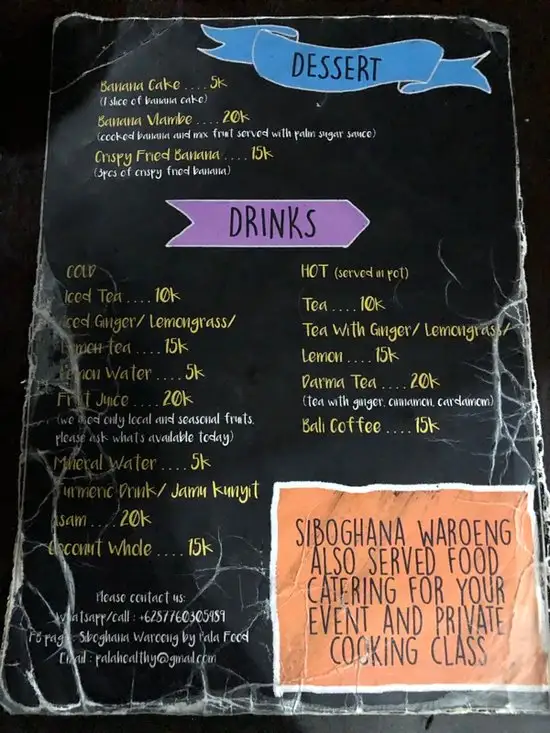 DESSERT
Banana Cake .... 5k
(1 slice of banana cake)
Banana Vlambe .... 20k
(cooked banana and mix fruit served with palm sugar sauce)
Crispy Fried Banana .... 15k
(3pcs of crispy fried banana)
DRINKS
COLD
Iced Tea .... 10k
Iced Ginger/ Lemongrass/
Lemon tea .... 15k
Lemon Water .... 5k
Fruit Juice .... 20k
(we used only local and seasonal fruits,
please ask whats available today)
Mineral Water .... 5k
Turmeric Drink/ Jamu kunyit
asam .... 20k
Coconut Whole .... 15k
HOT (served in pot)
Tea .... 10k
Tea With Ginger/ Lemongrass/
Lemon .... 15k
Darma Tea .... 20k
(tea with ginger, cinnamon, cardamom)
Bali Coffee .... 15k
Please contact us:
Whatsapp/call : +6287760305989
FB page : Siboghana Waroeng by Pala Food
Email : palahealthy@gmail.com
SIBOGHANA WAROENG
ALSO SERVED FOOD
CATERING FOR YOUR
EVENT AND PRIVATE
COOKING CLASS